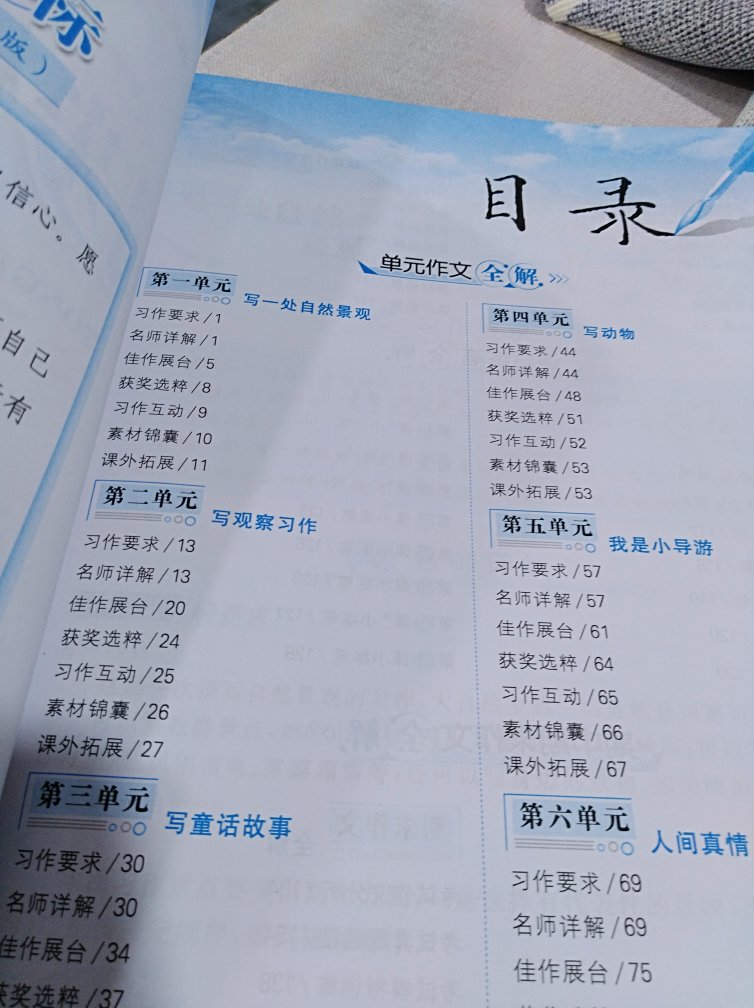 标
版）
信心。愿
自己
有
目录
单元作文全解
第一单元 写一处自然景观
习作要求/1
名师详解/1
佳作展台/5
获奖选粹/8
习作互动/9
素材锦囊/10
课外拓展/11
第二单元 写观察习作
习作要求/13
名师详解/13
佳作展台/20
获奖选粹/24
习作互动/25
素材锦囊/26
课外拓展/27
第三单元 写童话故事
习作要求/30
名师详解/30
佳作展台/34
获奖选粹/37
第四单元 写动物
习作要求/44
名师详解/44
佳作展台/48
获奖选粹/51
习作互动/52
素材锦囊/53
课外拓展/53
第五单元 我是小导游
习作要求/57
名师详解/57
佳作展台/61
获奖选粹/64
习作互动/65
素材锦囊/66
课外拓展/67
第六单元 人间真情
习作要求/69
名师详解/69
佳作展台/75